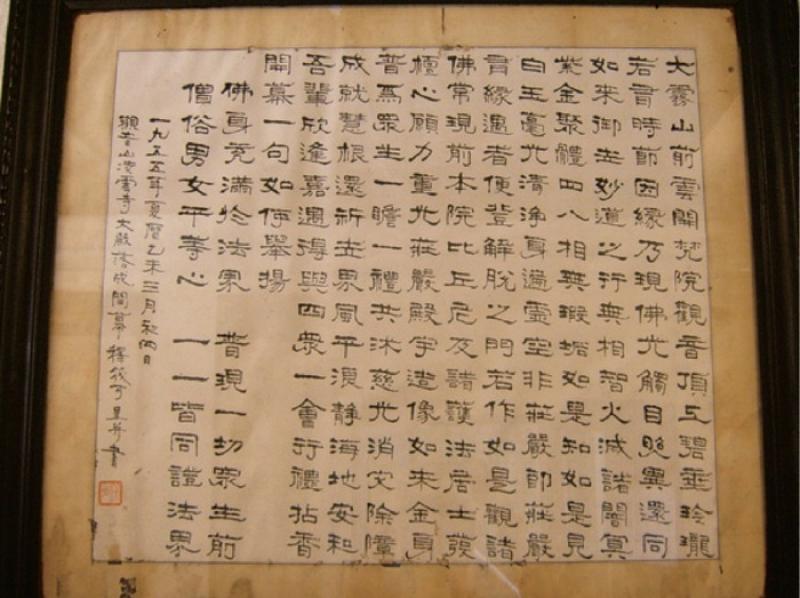 大霧山前雲開梵院觀音頂上碧垂玲瓏
若時節因緣乃現佛光觸目異還同
如來御世妙道之行無相智火滅諸闇冥
紫金聚體四八相無瑕垢如是知如是見
白玉毫光清淨身遍靈空非莊嚴即莊嚴
有緣遇者便登解脫之門若作如是觀諸
佛常現前本院比丘尼及諸護法居士發
檀心願力重光莊嚴殿宇造像如來金身
普為眾生一瞻一禮共沐慈光消灾除障
成就慧根還祈世界風平浪静海地安和
吾輩欣逢嘉遇得與四眾一會行禮拈香
開幕一句如何舉揚
佛身充滿於法界 普現一切眾生前
僧俗男女平等心 一一皆同證法界
一九五五年夏曆乙未三月初四日
觀音山凌雲寺大殿落成開幕 釋可呈并書